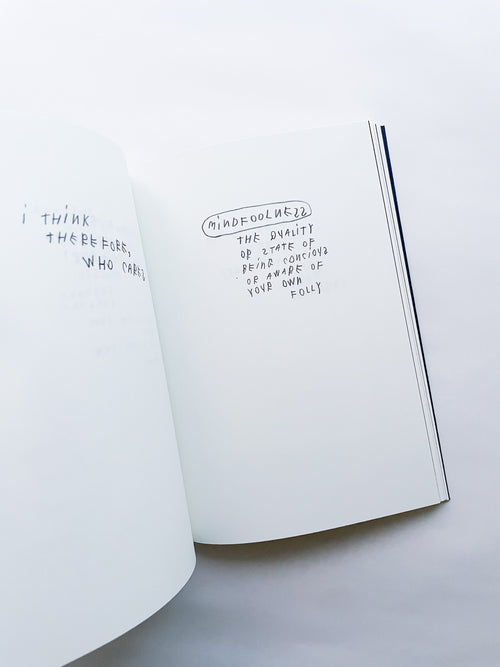 i THiNK
THEREFORE,
WHO CARES
MiNDFOOLNESS
THE QUALITY
OR STATE OF
BEING CONSCIOUS
OR AWARE OF
YOUR OWN
FOLLY